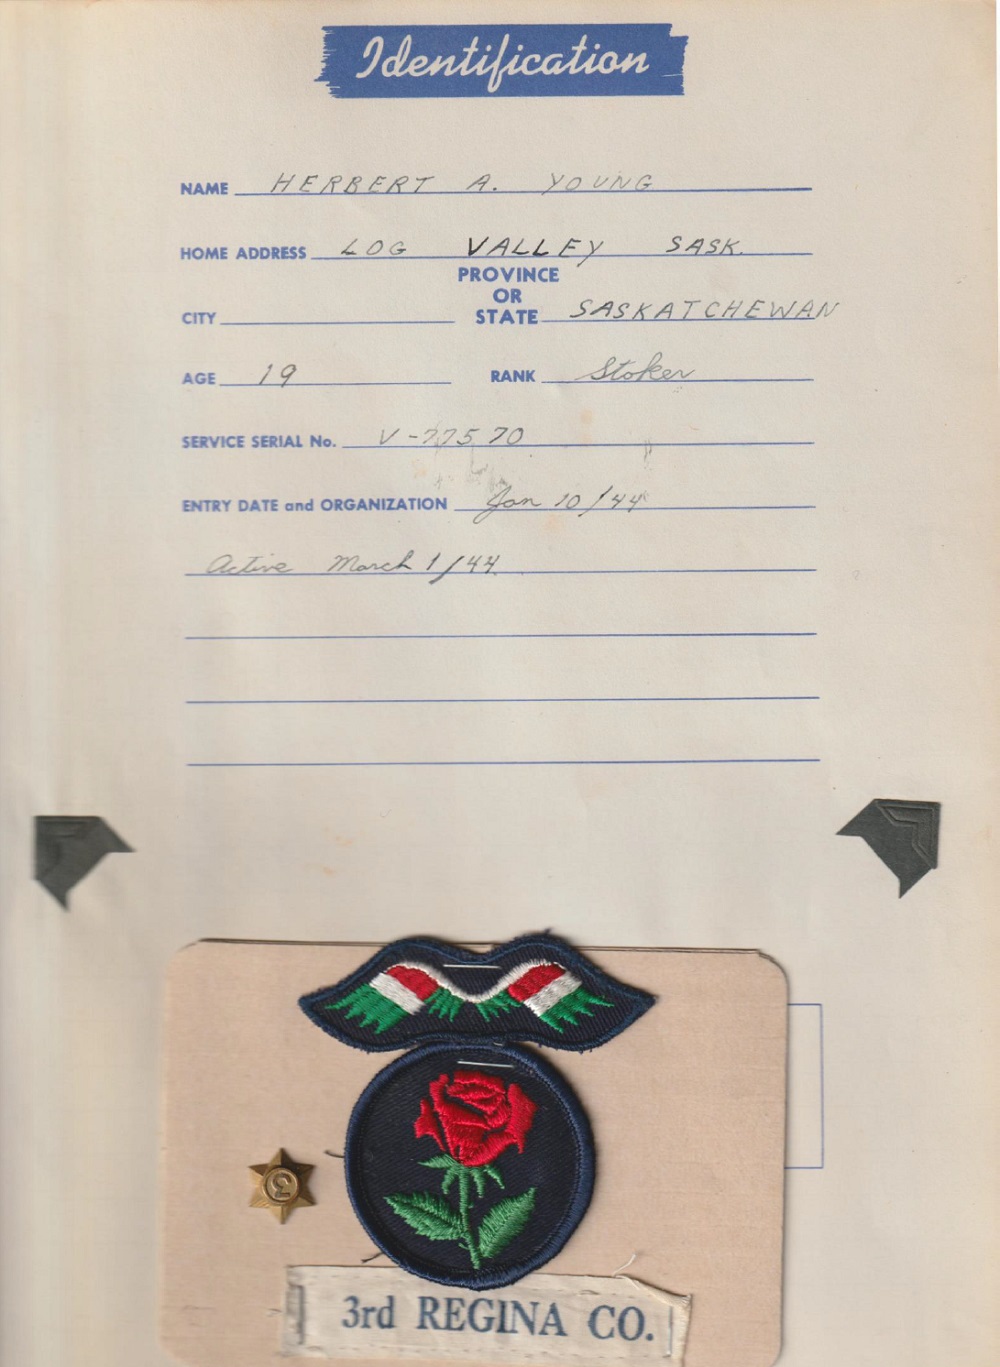 Identification
NAME HERBERT A. YOUNG
HOME ADDRESS LOG VALLEY SASK.
PROVINCE
OR
CITY STATE SASKATCHEWAN
AGE 19 RANK Stoker
SERVICE SERIAL No. V-77570
ENTRY DATE and ORGANIZATION Jan 10/44
Active March 1/44
3
3rd REGINA CO.